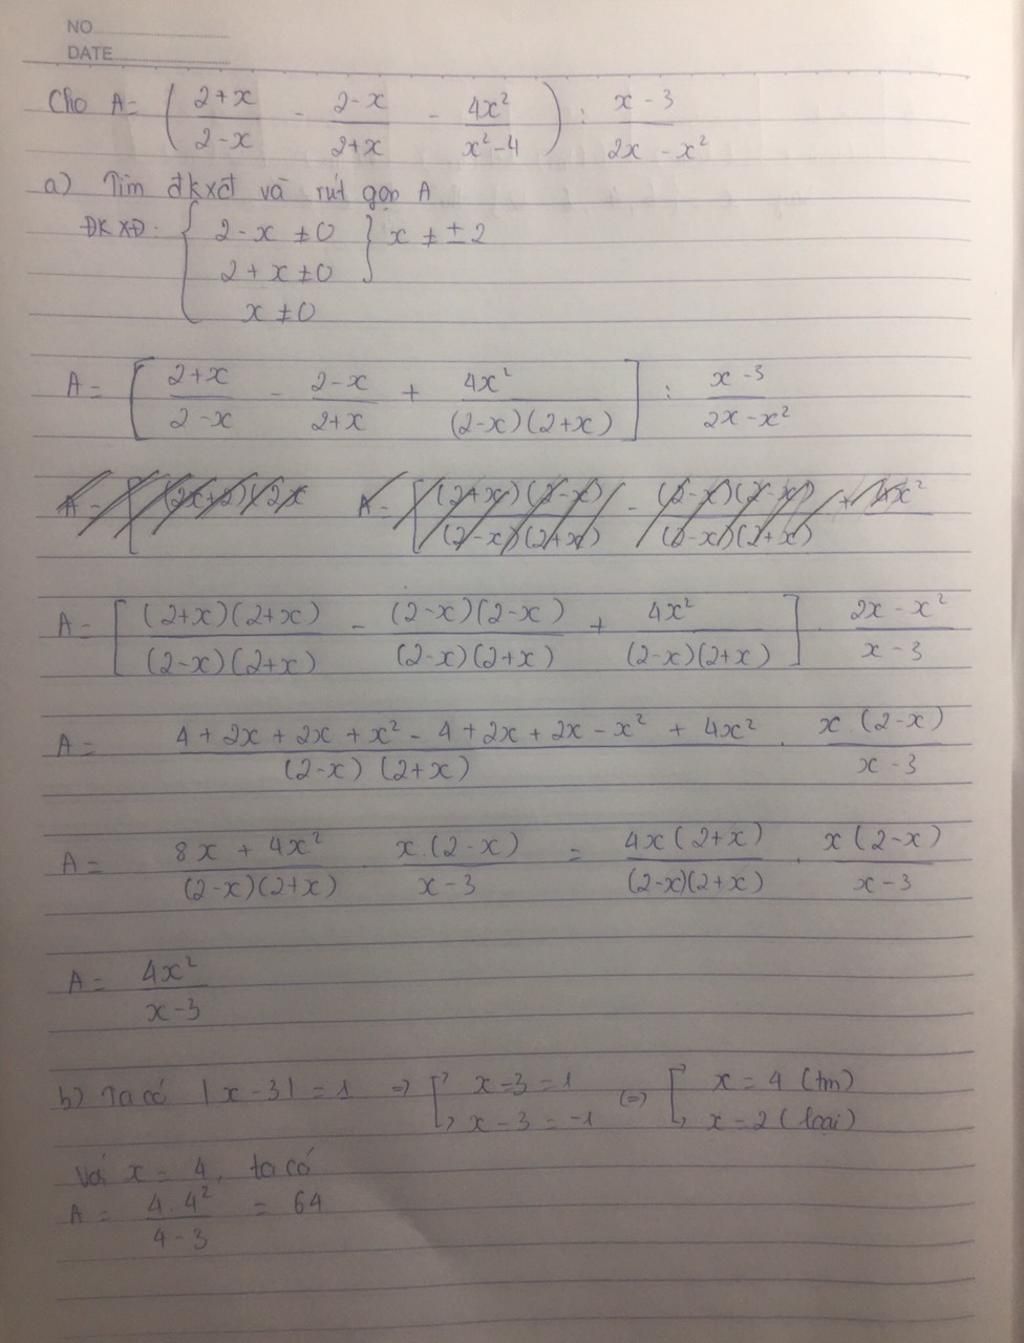 NO
DATE
Cho A= ( (2+x)/(2-x) - (2-x)/(2+x) - 4x²/(x²-4) ) : (x-3)/(2x-x²)
a) Tìm đkxđ và rút gọn A
ĐKXĐ: { 2-x ≠0 } x ≠ ±2
2+x ≠0
x ≠0
A = [ (2+x)/(2-x) - (2-x)/(2+x) + 4x²/((2-x)(2+x)) ] : (x-3)/(2x-x²)
A= [ ((2+x)(2+x))/((2-x)(2+x)) - ((2-x)(2-x))/((2-x)(2+x)) + 4x²/((2-x)(2+x)) ] . (2x-x²)/(x-3)
A= (4+2x+2x+x²-4+2x+2x-x²+4x²)/((2-x)(2+x)) . (x.(2-x))/(x-3)
A= (8x+4x²)/((2-x)(2+x)) . (x.(2-x))/(x-3) = (4x(2+x))/((2-x)(2+x)) . (x(2-x))/(x-3)
A= 4x²/(x-3)
b) Ta có |x-3| = 1 => [ x-3=1 (=) [ x = 4 (tm)
x-3=-1 x=2 (loại)
Với x = 4, ta có
A = (4.4²)/(4-3) = 64